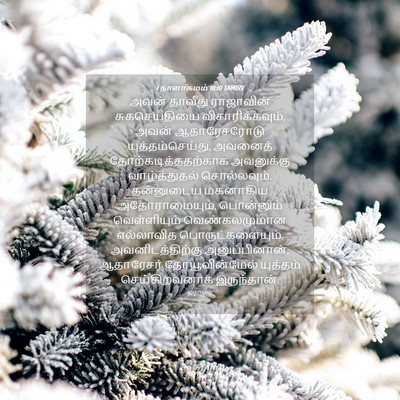 1 நாளாகமம் 18:10 TAMIRV
அவன் தாவீது ராஜாவின்
சுகசெய்தியை விசாரிக்கவும்,
அவன் ஆதாரேசரோடு
யுத்தம்செய்து, அவனைத்
தோற்கடித்ததற்காக அவனுக்கு
வாழ்த்துதல் சொல்லவும்,
தன்னுடைய மகனாகிய
அதோராமையும், பொன்னும்
வெள்ளியும் வெண்கலமுமான
எல்லாவித பொருட்களையும்,
அவனிடத்திற்கு அனுப்பினான்;
ஆதாரேசர் தோயூவின்மேல் யுத்தம்
செய்கிறவனாக இருந்தான்.